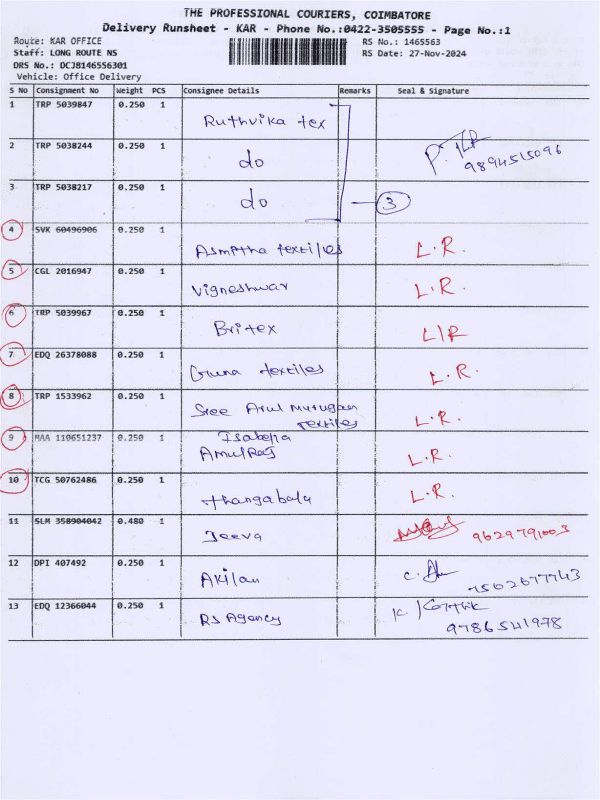 THE PROFESSIONAL COURIERS, COIMBATORE
Delivery Runsheet - KAR - Phone No.:0422-3505555 - Page No.:1
Route: KAR OFFICE RS No.: 1465563
Staff: LONG ROUTE NS RS Date: 27-Nov-2024
DRS No.: DCJB146556301
Vehicle: Office Delivery
S No Consignment No Weight PCS Consignee Details Remarks Seal & Signature
1 TRP 5039847 0.250 1 Ruthvika tex
2 TRP 5038244 0.250 1 do 9894515096
3 TRP 5038217 0.250 1 do 3
4 SVK 60496906 0.250 1 Asmitha textiles L.R.
5 CGL 2016947 0.250 1 Vigneshwar L.R.
6 TRP 5039967 0.250 1 Britex L/R
7 EDQ 26378088 0.250 1 Guna textiles L.R.
8 TRP 1533962 0.250 1 Sree Arul Murugan textiles L.R.
9 MAA 110651237 0.250 1 Isabella Amulraj L.R.
10 TCG 50762486 0.250 1 thangabala L.R.
11 SLM 358904042 0.480 1 Jeeva 9629791003
12 DPI 407492 0.250 1 Akilan 7502677743
13 EDQ 12366044 0.250 1 Rs Agency K. Karthik 9786541978